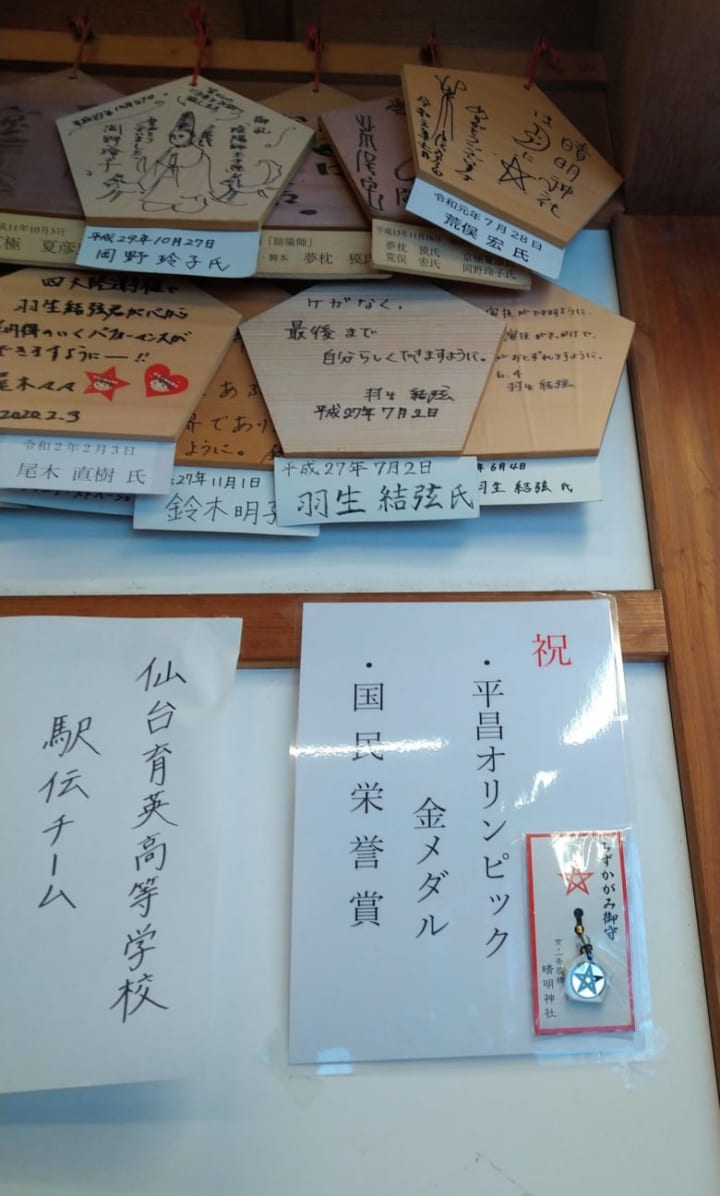 平成29年10月27日
岡野玲子
平成29年10月27日
岡野 玲子氏
晴明神社
は
令和元年七月
令和元年7月28日
荒俣 宏 氏
平成11年10月3日
極 夏彦
「陰陽師」
夢枕 獏氏
平成13年11月18日
夢枕 獏氏
荒俣 宏氏
岡野玲子氏
羽生結弦君が心から
納得のいくパフォーマンスが
できますようにー!!
尾木々々
2020.2.3
令和2年2月3日
尾木 直樹 氏
ように。
27年11月1日
鈴木明子
ケガなく、
最後まで
自分らしくできますように。
羽生 結弦
平成27年7月2日
平成27年7月2日
羽生 結弦氏
演技ができますように。
演技がきっかけで、
がおとずれますように。
6.4
羽生 結弦
年6月4日
羽生 結弦 氏
仙台育英高等学校
駅伝チーム
祝
・平昌オリンピック
金メダル
・国民栄誉賞
みずかがみ御守
晴明神社